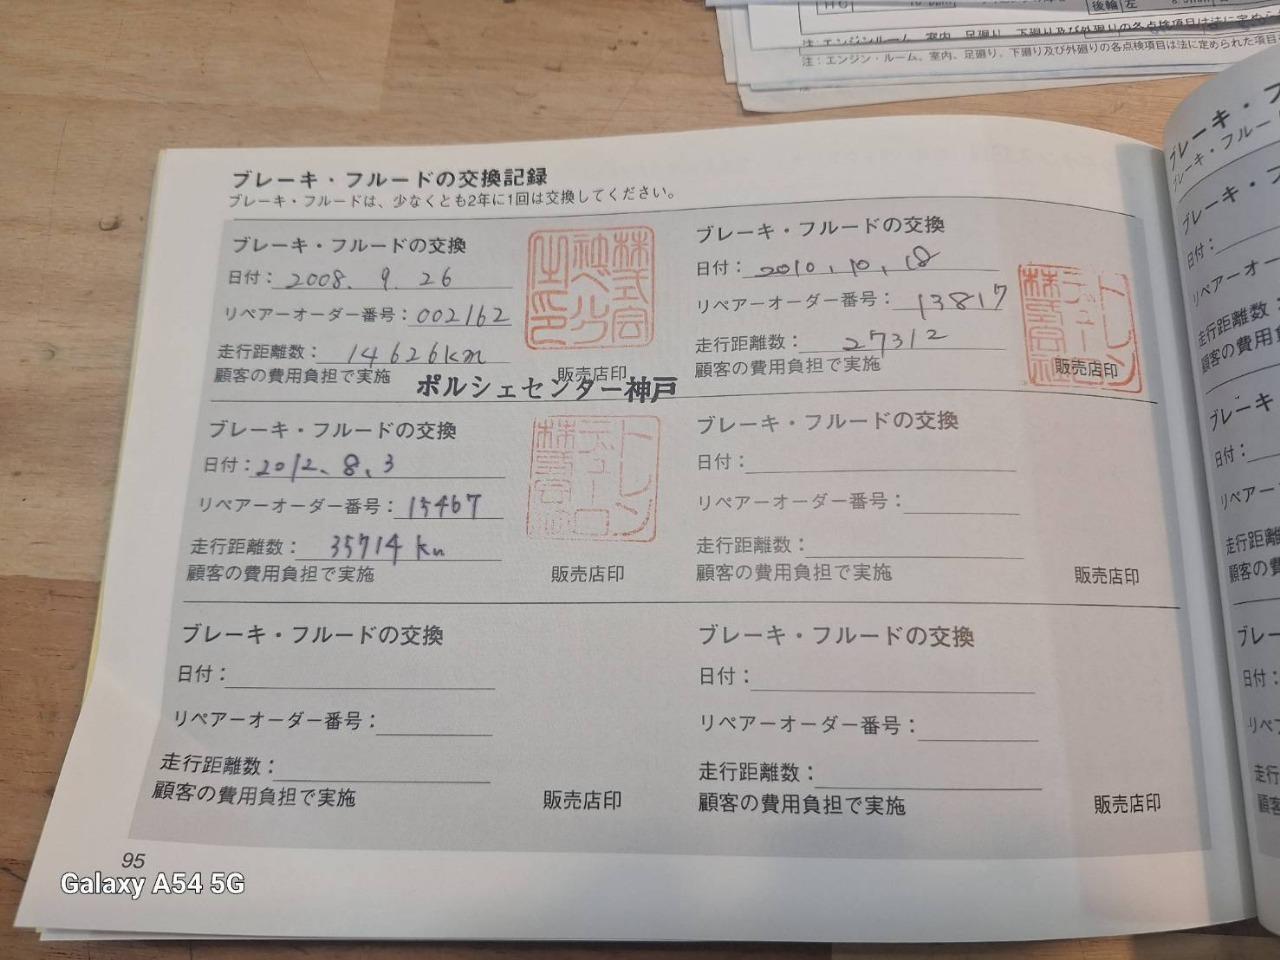 注：エンジン・ルーム、室内、足廻り、下廻り及び外廻りの各点検項目は法に定められた項目
ブレーキ・フルードの交換記録
ブレーキ・フルードは、少なくとも2年に1回は交換してください。
ブレーキ・フルードの交換
日付：2008. 9. 26
リペアーオーダー番号：002162
走行距離数：14626km
顧客の費用負担で実施
販売店印
ポルシェセンター神戸
ブレーキ・フルードの交換
日付：2010. 10. 18
リペアーオーダー番号：13817
走行距離数：27312
顧客の費用負担で実施
販売店印
ブレーキ・フルードの交換
日付：2012. 8. 3
リペアーオーダー番号：15467
走行距離数：35714 km
顧客の費用負担で実施
販売店印
ブレーキ・フルードの交換
日付：
リペアーオーダー番号：
走行距離数：
顧客の費用負担で実施
販売店印
ブレーキ・フルードの交換
日付：
リペアーオーダー番号：
走行距離数：
顧客の費用負担で実施
販売店印
ブレーキ・フルードの交換
日付：
リペアーオーダー番号：
走行距離数：
顧客の費用負担で実施
販売店印
95
Galaxy A54 5G